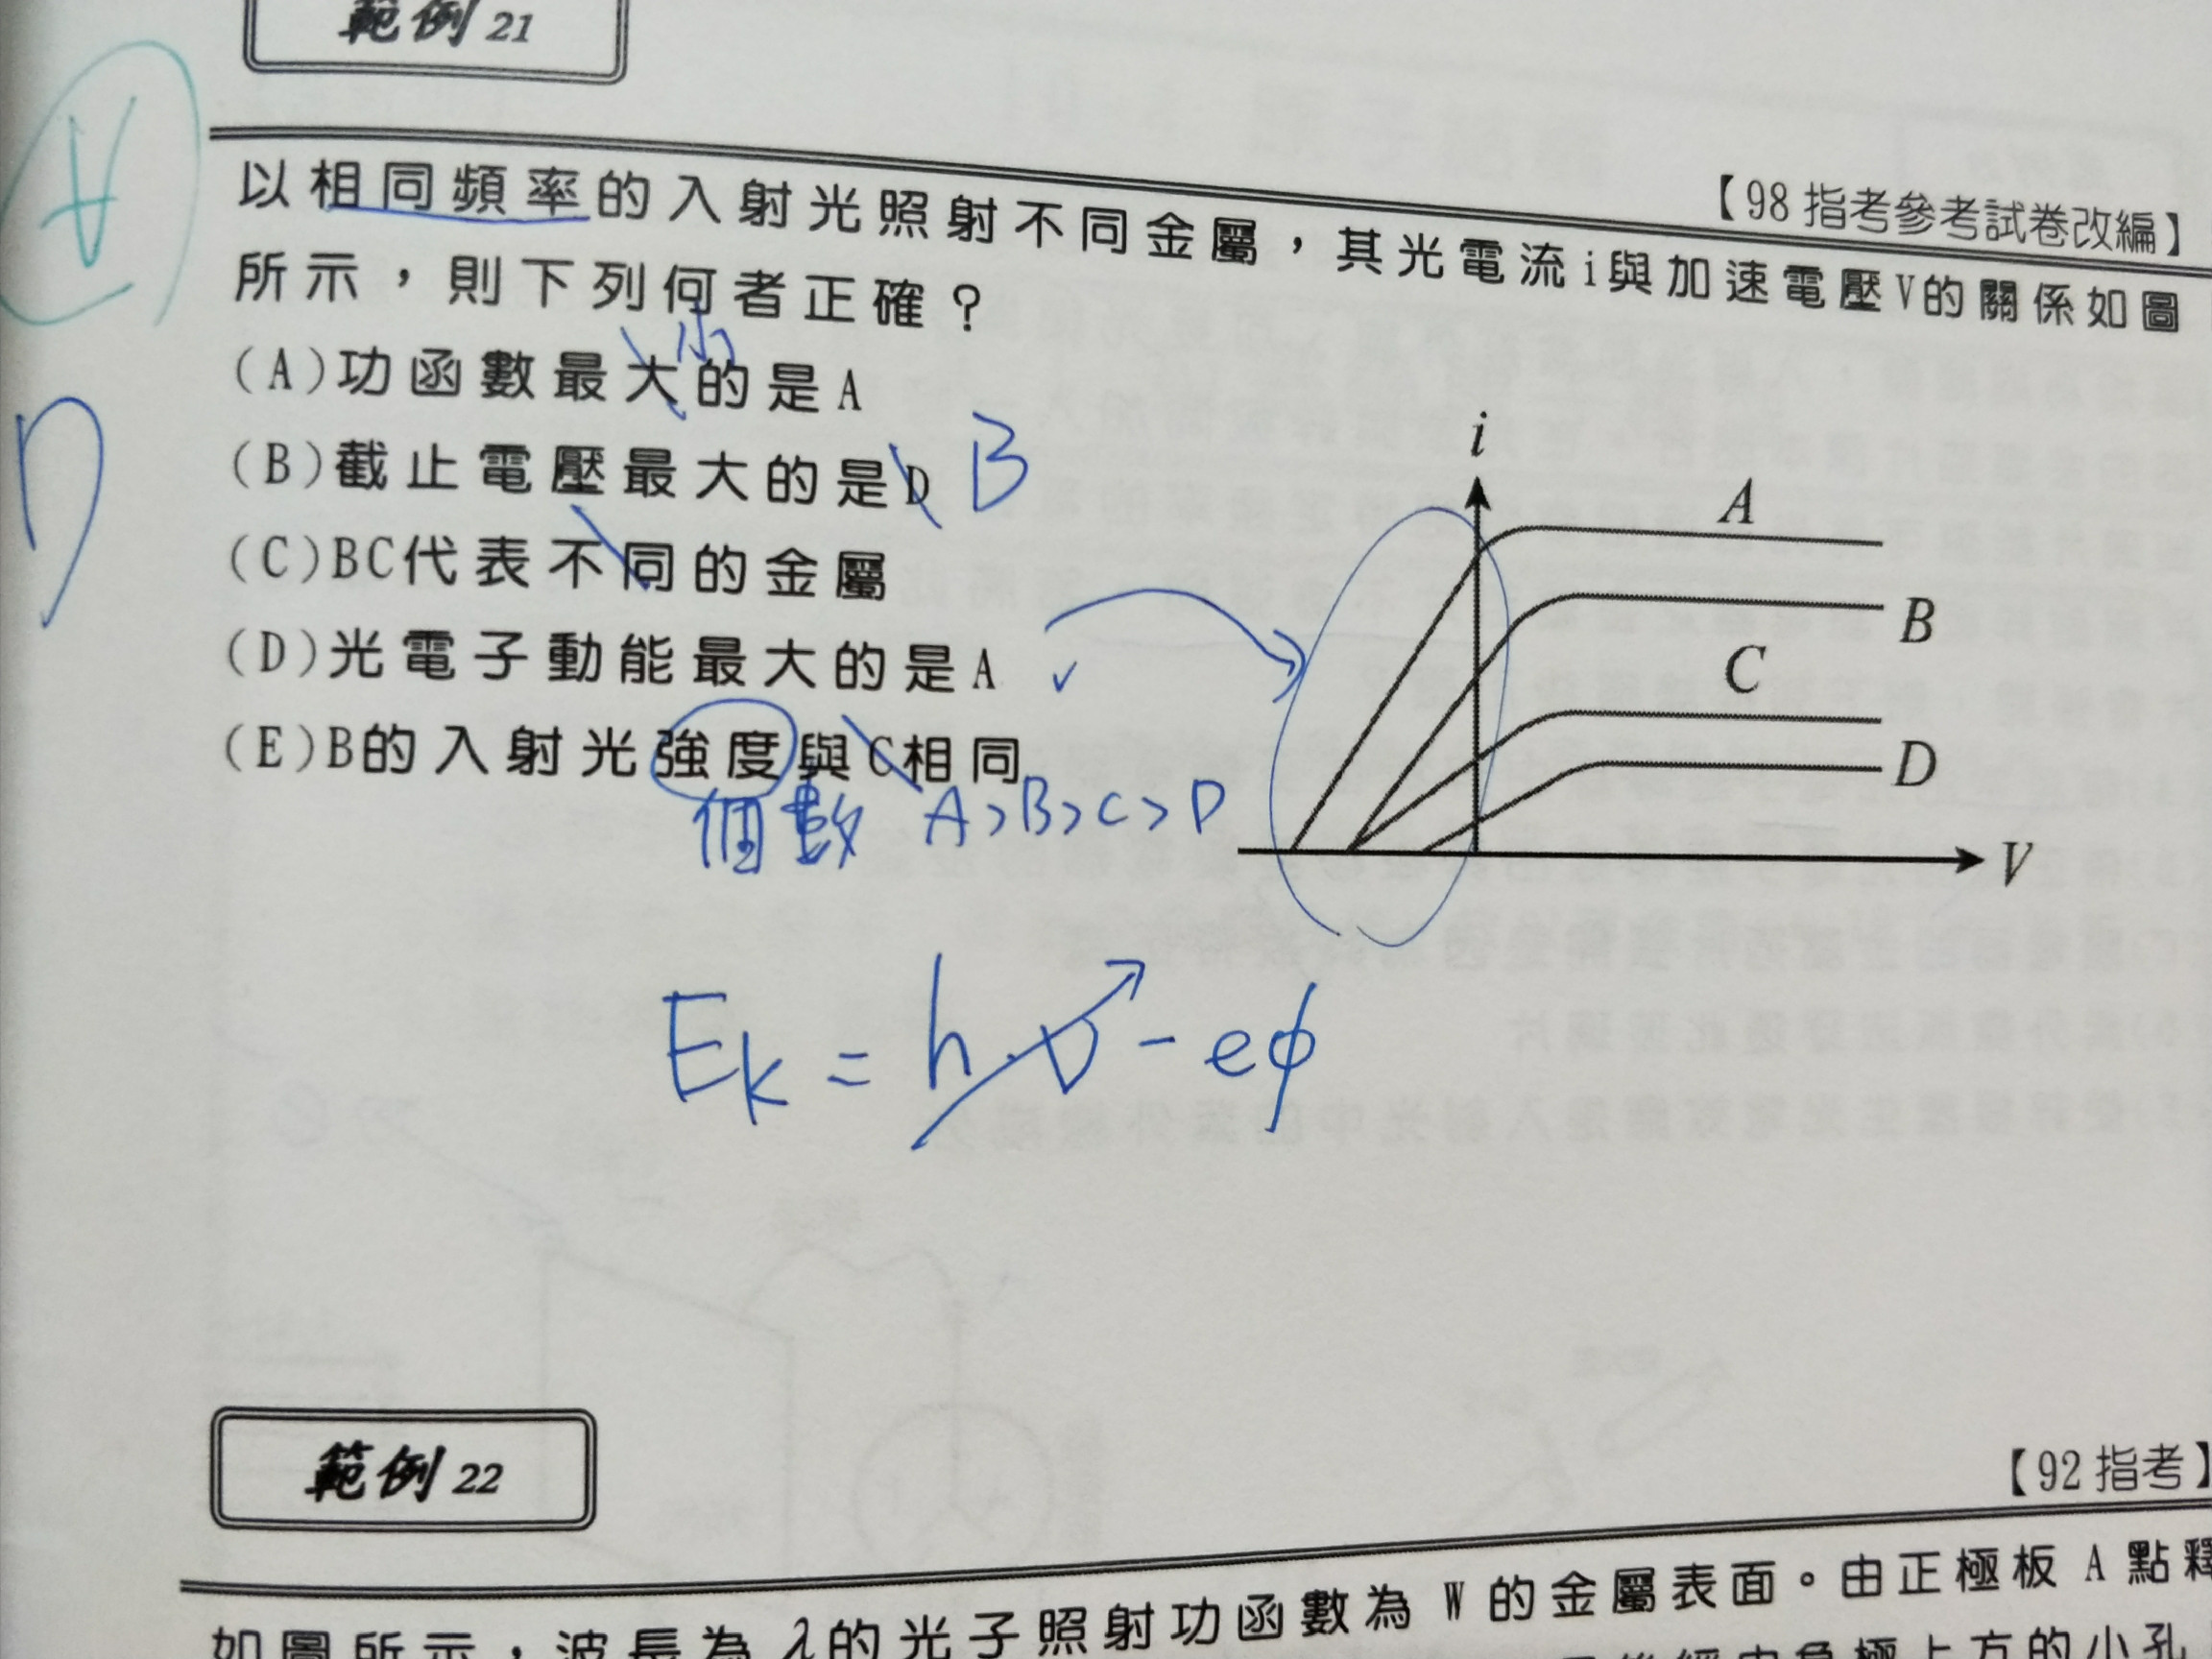 範例 21
【98 指考參考試卷改編】
以相同頻率的入射光照射不同金屬，其光電流 i 與加速電壓 V 的關係如圖
所示，則下列何者正確？
小
(A)功函數最大的是 A
(B)截止電壓最大的是 D B
(C)BC代表不同的金屬
(D)光電子動能最大的是 A ✓
(E)B的入射光強度與C相同
個數 A>B>C>D
D
i
A
B
C
D
V
Ek = h·ν - eφ
範例 22
【92 指考】
如圖所示，波長為 λ 的光子照射功函數為 W 的金屬表面。由正極板 A 點釋